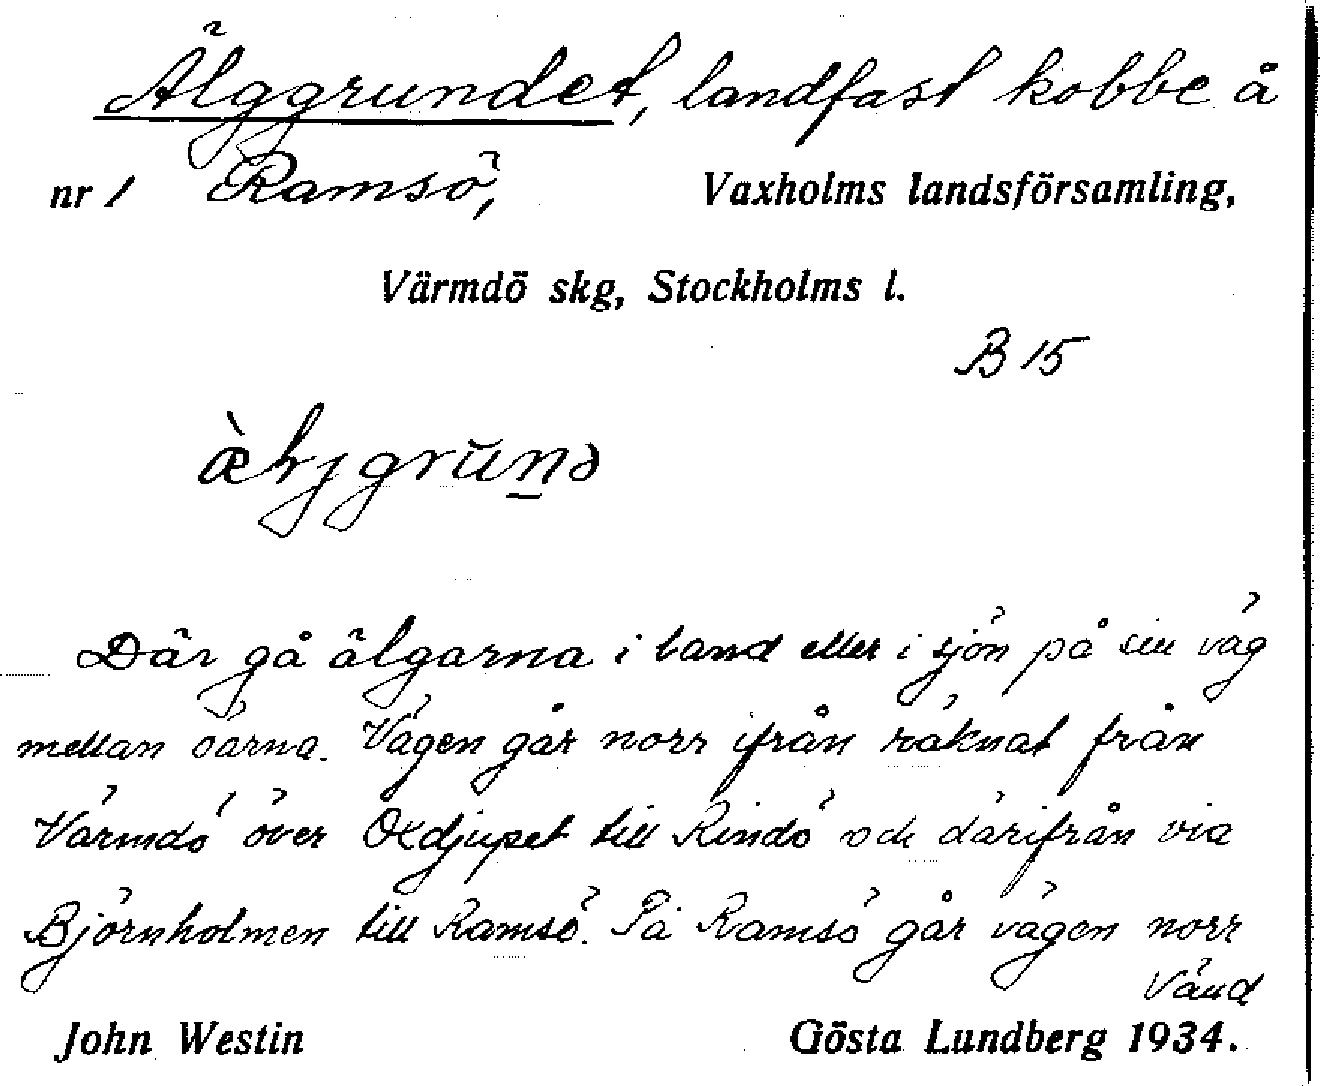 Älggrundet, landfast kobbe å
nr 1 Ramsö, Vaxholms landsförsamling,
Värmdö skg, Stockholms l.
B 15
Där gå älgarna i land eller i sjön på sin väg
mellan öarna. Vägen går norr ifrån räknat från
Värmdö över Oxdjupet till Rindö och därifrån via
Björnholmen till Ramsö. På Ramsö går vägen norr
Vänd
John Westin Gösta Lundberg 1934.